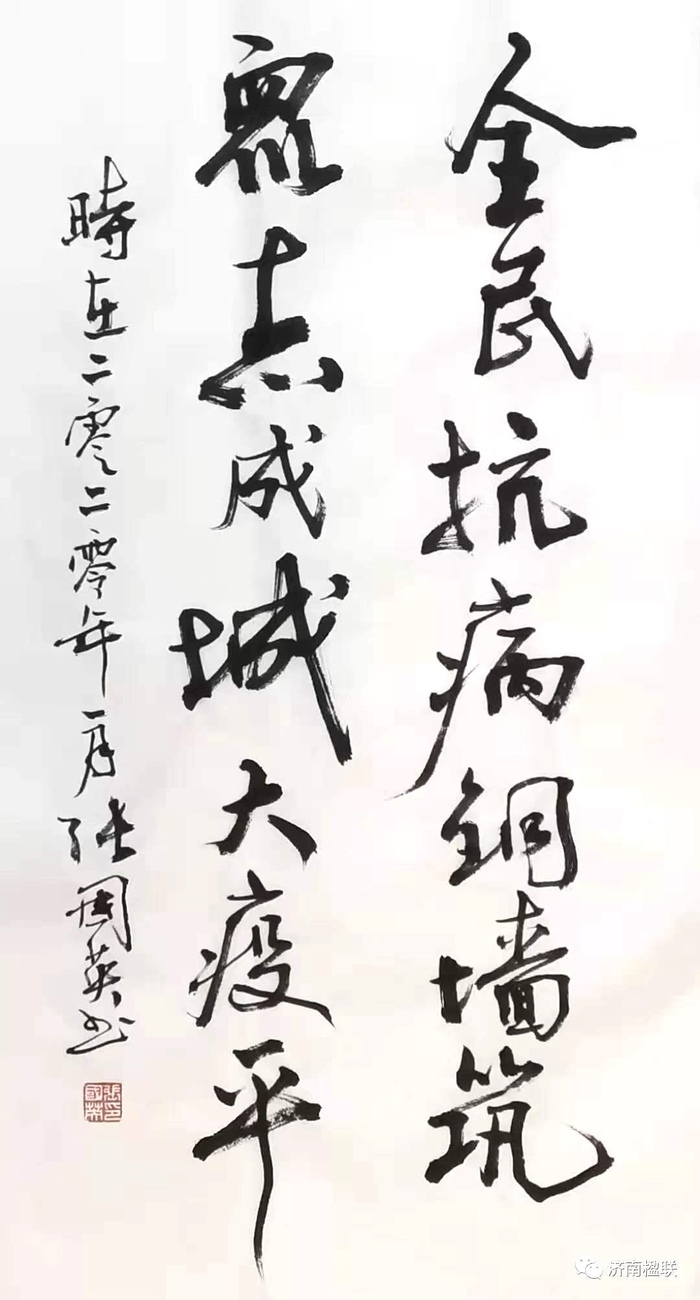 全民抗病铜墙筑
眾志成城大疫平
時在二零二零年一月张國英书
張國英印
济南楹联